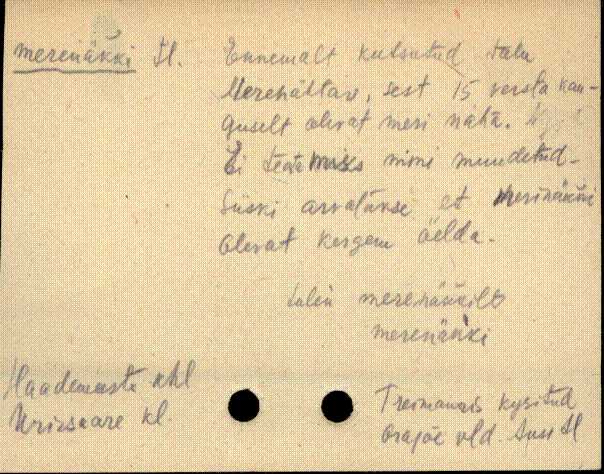 merenäkki tl. Ennemalt kutsutud talu
Merenältav, sest 15 versta kau-
guselt olevat meri näha.
Ei tea miks nimi muudetud.
Siiski arvatakse et merinäkki
olevat kergem öelda.
talin merenäkkile
merenäkki
Haademeeste khl
Urissaare kl.
Treimannis kysitud
Orajõe vld. tl